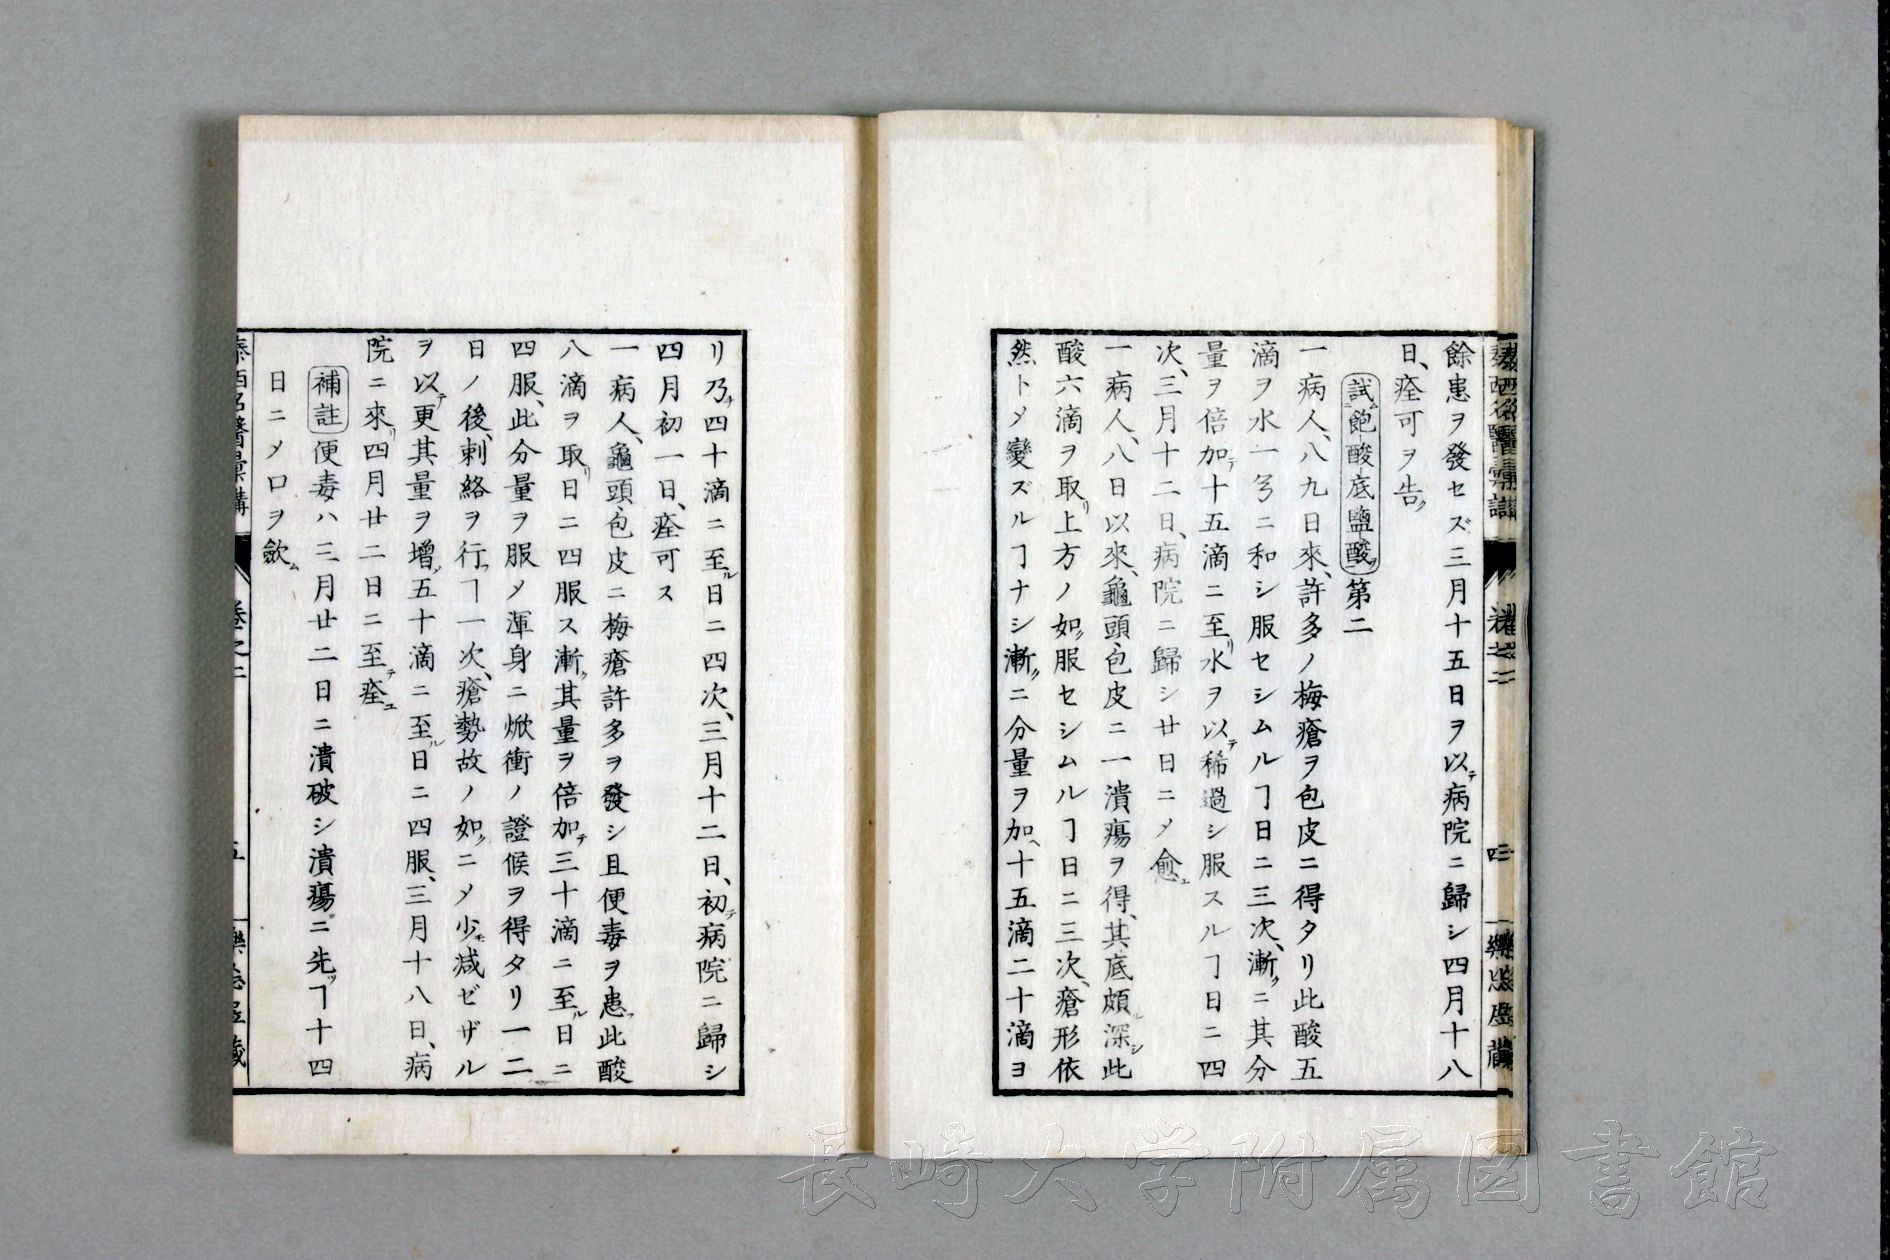 餘患ヲ發セズ三月十五日ヲ以テ病院ニ歸シ四月十八
日、痊可ヲ告ク
試飽酸底鹽酸 第二
一病人、八九日來、許多ノ梅瘡ヲ包皮ニ得タリ此酸五
滴ヲ水一弓ニ和シ服セシムルヿ日ニ三次、漸クニ其分
量ヲ倍加テ十五滴ニ至リ水ヲ以テ稀過シ服スルヿ日ニ四
次、三月十二日、病院ニ歸シ廿日ニメ愈ユ
一病人、八日以來、龜頭、包皮ニ一潰瘍ヲ得、其底頗ル深シ此
酸六滴ヲ取リ上方ノ如ク服セシムルヿ日ニ三次、瘡形依
然トメ變ズルヿナシ漸クニ分量ヲ加ヘ十五滴二十滴ヨ
リ乃チ四十滴ニ至ル日ニ四次、三月十二日、初テ病院ニ歸シ
四月初一日、痊可ス
一病人、龜頭、包皮ニ梅瘡許多ヲ發シ且便毒ヲ患フ此酸
八滴ヲ取リ日ニ四服ス漸ク其量ヲ倍加テ三十滴ニ至ル日ニ
四服、此分量ヲ服メ渾身ニ焮衝ノ證候ヲ得タリ一二
日ノ後、刺絡ヲ行フヿ一次、瘡勢故ノ如クニメ少モ減ゼザル
ヲ以テ更其量ヲ增シ五十滴ニ至ル日ニ四服、三月十八日、病
院ニ來リ四月廿二日ニ至テ痊ユ
補註 便毒ハ三月廿二日ニ潰破シ潰瘍ニ先ツヿ十四
日ニメ口ヲ歛ム
泰西名醫彙講
卷之二
五
長崎大学附属図書館